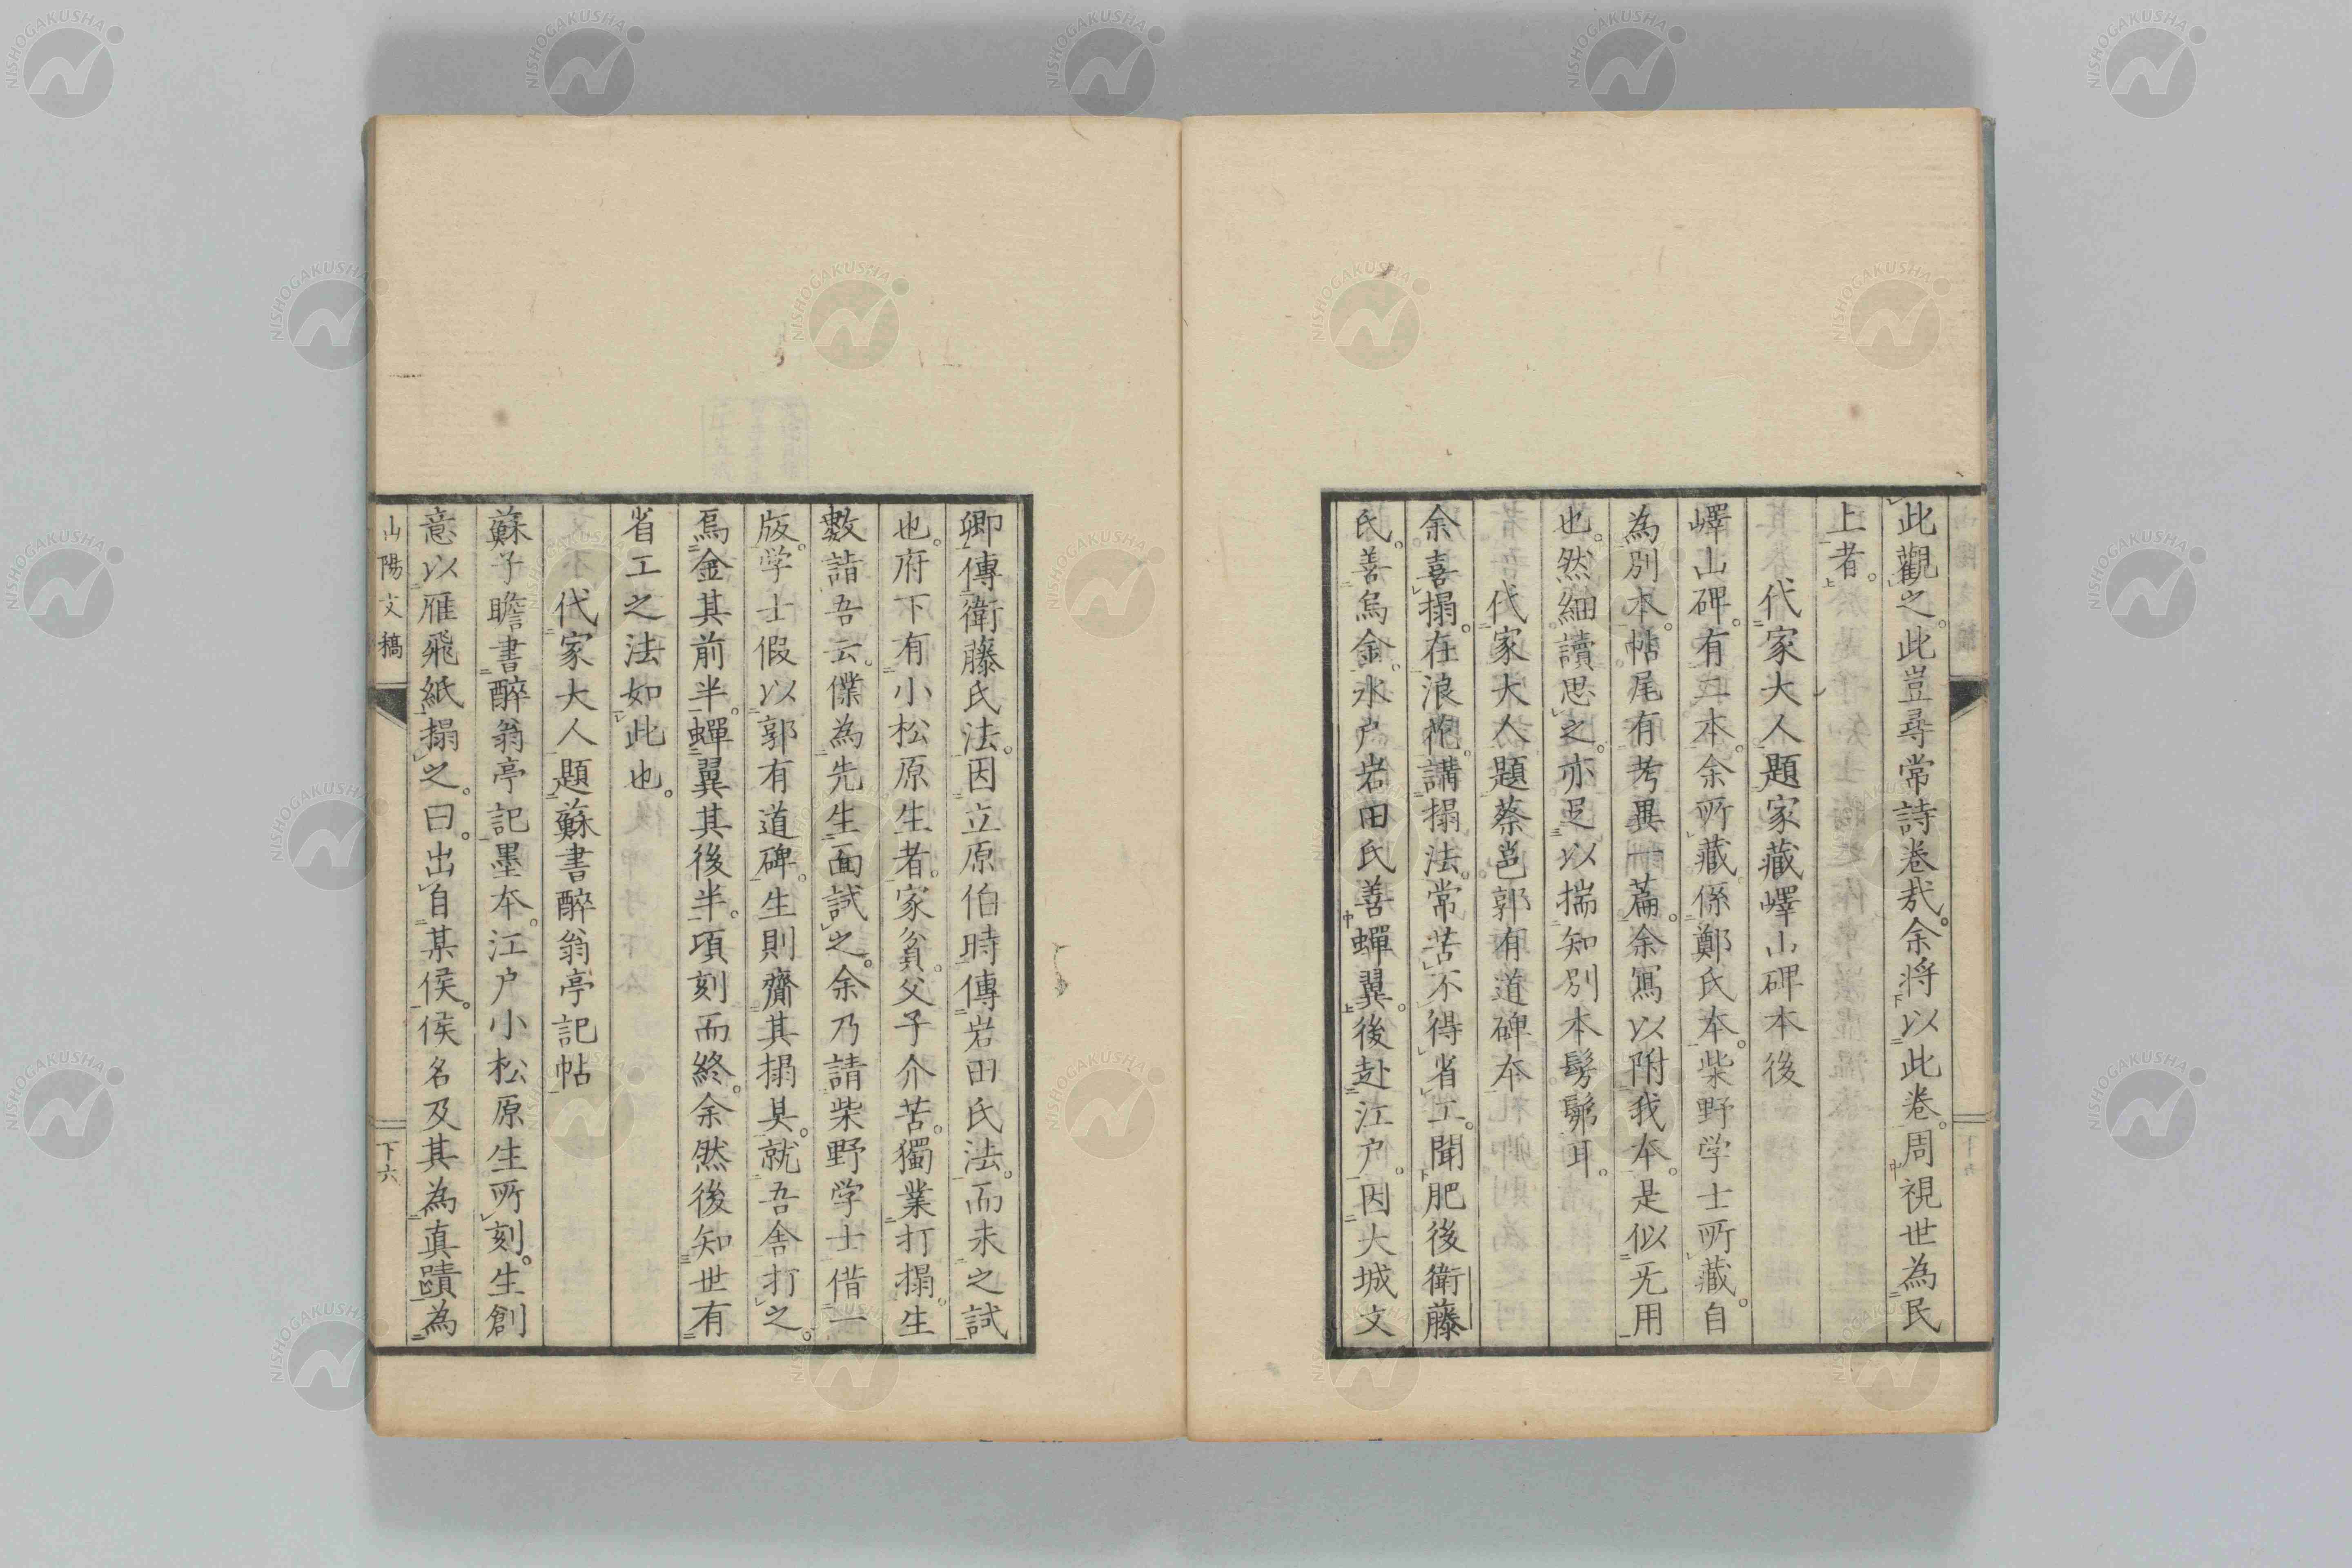 此觀之。此豈尋常詩卷㢤。余将以此卷。周視世為民
上者。
代家大人題家藏嶧山碑本後
嶧山碑。有二本。余所藏係鄭氏本。柴野学士所藏。自
為別本。帖尾有考異一篇。余寫以附我本。是似无用
也。然細讀思之。亦足以揣知別本髣髴耳。
代家大人題蔡邕郭有道碑本
余喜搨。在浪芲。講搨法。常苦不得省工。聞肥後衛藤
氏。善烏金。水户岩田氏善蟬翼。後赴江户。因大城文
卿傳衛藤氏法。因立原伯時傳岩田氏法。而未之試
也。府下有小松原生者。家貧。父子介苦。獨業打搨。生
數詣吾云。僕為先生面試之。余乃請柴野学士借一
版。学士假以郭有道碑。生則齎其搨具。就吾舎打之。
烏金其前半。蟬翼其後半。項刻而終。余然後知世有
省工之法如此也。
代家大人題蘇書醉翁亭記帖
蘇子瞻書醉翁亭記墨本。江户小松原生所刻。生創
意以雁飛紙搨之。曰。出自某侯。侯名及其為真蹟為
山陽文稿
下六